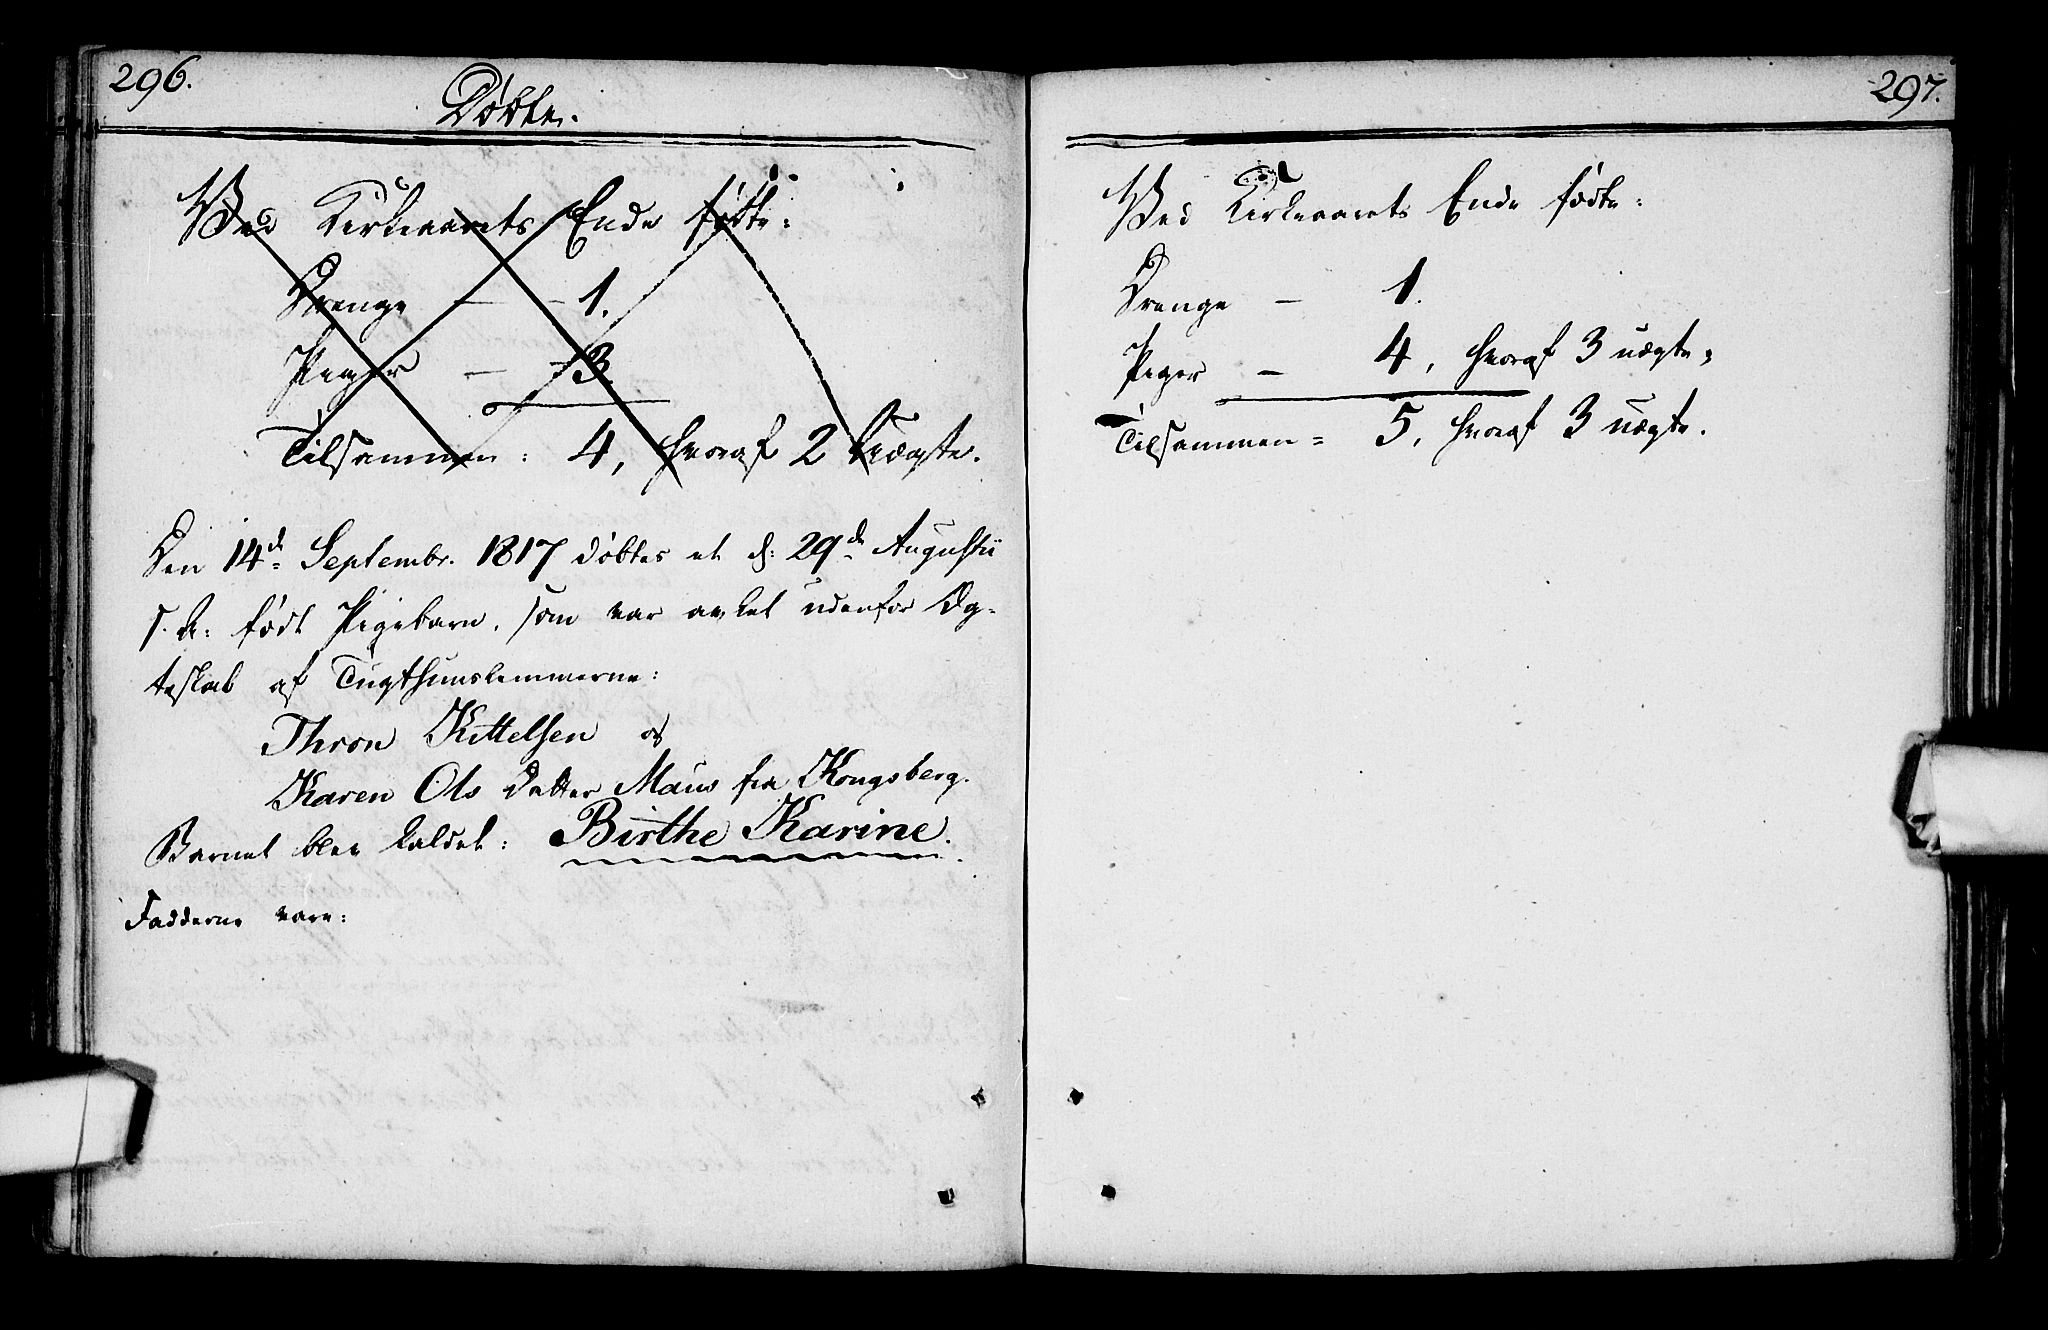 296.
Døbte.
Ved Kirkeaarets Ende fødte:
Drenge — - 1.
Piger — - 3.
Tilsammen: 4, hvoraf 2 Uægte.
Den 14de Septembr. 1817 døbtes et d: 29de Augustii
s. A: født Pigebarn, som var avlet udenfor Æg-
teskab af Tugthuuslemmerne:
Thron Kittelsen og
Karen Ols Datter Maus fra Kongsberg.
Barnet blev kaldet: Birthe Karine.
Fadderne vare:
297.
Ved Kirkeaarets Ende fødte:
Drenge — 1.
Piger — 4, hvoraf 3 uægte,
Tilsammen = 5, hvoraf 3 uægte.